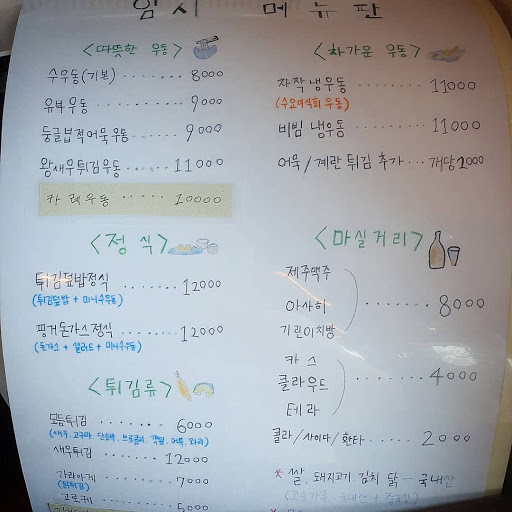 임시 메뉴판
<따뜻한 우동>
수우동(기본) ........ 8000
유부우동 ........ 9000
둥글넙적어묵우동 ...... 9000
왕새우튀김우동 ...... 11000
카레우동 ...... 10000
<정식>
튀김덮밥정식 ...... 12000
(튀김덮밥 + 미니우동)
핑거돈가스정식 ...... 12000
(돈가스 + 샐러드 + 미니우동)
<튀김류>
모듬튀김 ...... 6000
새우튀김 ...... 12000
가라아게 ...... 7000
(닭튀김)
고로케 ...... 5000
<차가운 우동>
자작냉우동 ........ 11000
(수요미식회 우동)
비빔 냉우동 ...... 11000
어묵/계란 튀김 추가 ... 개당 2000
<마실거리>
제주맥주
아사히 ....... 8000
기린이치방
카스
클라우드 ....... 4000
테라
콜라/사이다/환타 ..... 2000
* 쌀, 돼지고기, 김치, 닭 - 국내산